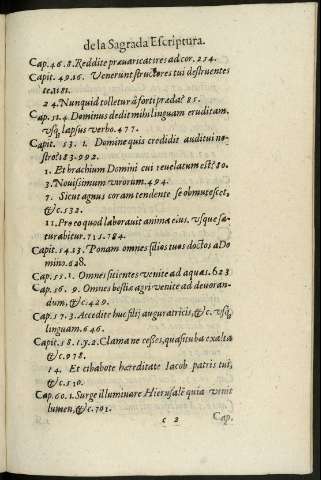 de la Sagrada Escriptura.
Cap. 46. 8. Reddite præuaricatires ad cor. 254.
Capit. 49. 16. Venerunt structores tui destruentes
te. 1181.
24. Nunquid tolletur à forti præda? 85.
Cap. 51. 4. Dominus dedit mihi linguam eruditam.
vsq; lapsus verbo. 477.
Capit. 53. 1. Domine quis credidit auditui no-
stro? 183. 992.
1. Et brachium Domini cui reuelatum est? 80.
3. Nouissimum virorum. 494.
7. Sicut agnus coram tendente se obmutescet,
&c. 532.
11. Pro eo quod laborauit anima eius. Vsque sa-
turabitur. 715. 784.
Capit. 54. 13. Ponam omnes filios tuos doctos à Do
mino. 628.
Cap. 55. 1. Omnes sitientes venite ad aquas. 623
Cap. 56. 9. Omnes bestiæ agri venite ad deuoran-
dum, &c. 429.
Cap. 57. 3. Accedite huc filij auguratricis, &c. vsq;
linguam. 646.
Capit. 58. 1. y. 2. Clama ne cesses, quasi tuba exalta
&c. 978.
14. Et cibabo te hæreditate Iacob patris tui,
&c. 510.
Cap. 60. 1. Surge illuminare Hierusalẽ quia venit
lumen, &c. 701.
c 2
Cap.